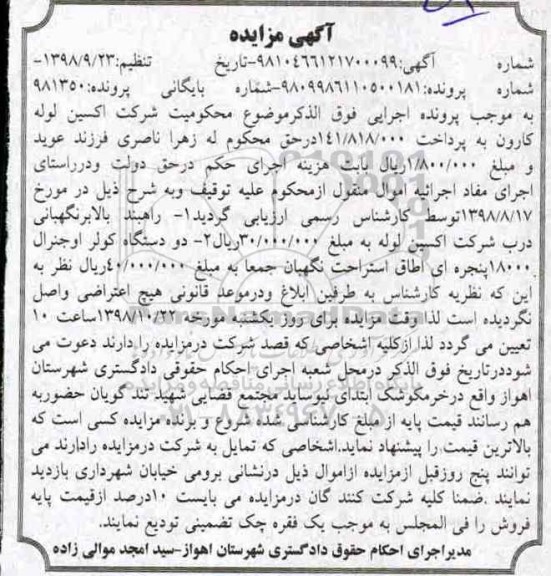 آگهی مزایده
شماره آگهی:۹۸۱۰۴۶۶۱۲۱۷۰۰۰۹۹-تاریخ تنظیم:۱۳۹۸/۹/۲۳-
شماره پرونده:۹۸۰۹۹۸۶۱۱۰۵۰۰۱۸۱-شماره بایگانی پرونده:۹۸۱۳۵۰
به موجب پرونده اجرایی فوق الذکرموضوع محکومیت شرکت اکسین لوله
کارون به پرداخت ۱۴۱/۸۱۸/۰۰۰درحق محکوم له زهرا ناصری فرزند عوید
و مبلغ ۱/۸۰۰/۰۰۰ریال بابت هزینه اجرای حکم درحق دولت ودرراستای
اجرای مفاد اجرائیه اموال منقول ازمحکوم علیه توقیف وبه شرح ذیل در مورخ
۱۳۹۸/۸/۱۷توسط کارشناس رسمی ارزیابی گردید۱- راهبند بالابرنگهبانی
درب شرکت اکسین لوله به مبلغ ۳۰/۰۰۰/۰۰۰ریال۲- دو دستگاه کولر اوجنرال
۱۸۰۰۰پنجره ای اطاق استراحت نگهبان جمعا به مبلغ ۴۰/۰۰۰/۰۰۰ریال نظر به
این که نظریه کارشناس به طرفین ابلاغ ودرموعد قانونی هیچ اعتراضی واصل
نگردیده است لذا وقت مزایده برای روز یکشنبه مورخه ۱۳۹۸/۱۰/۲۲ساعت ۱۰
تعیین می گردد لذا ازکلیه اشخاصی که قصد شرکت درمزایده را دارند دعوت می
شوددرتاریخ فوق الذکر درمحل شعبه اجرای احکام حقوقی دادگستری شهرستان
اهواز واقع درخرمکوشک ابتدای نیوساید مجتمع قضایی شهید تند گویان حضوربه
هم رسانند قیمت پایه از مبلغ کارشناسی شده شروع و برنده مزایده کسی است که
بالاترین قیمت را پیشنهاد نماید.اشخاصی که تمایل به شرکت درمزایده رادارند می
توانند پنج روزقبل ازمزایده ازاموال ذیل درنشانی برومی خیابان شهرداری بازدید
نمایند .ضمنا کلیه شرکت کنند گان درمزایده می بایست ۱۰درصد ازقیمت پایه
فروش را فی المجلس به موجب یک فقره چک تضمینی تودیع نمایند.
مدیراجرای احکام حقوق دادگستری شهرستان اهواز-سید امجد موالی زاده